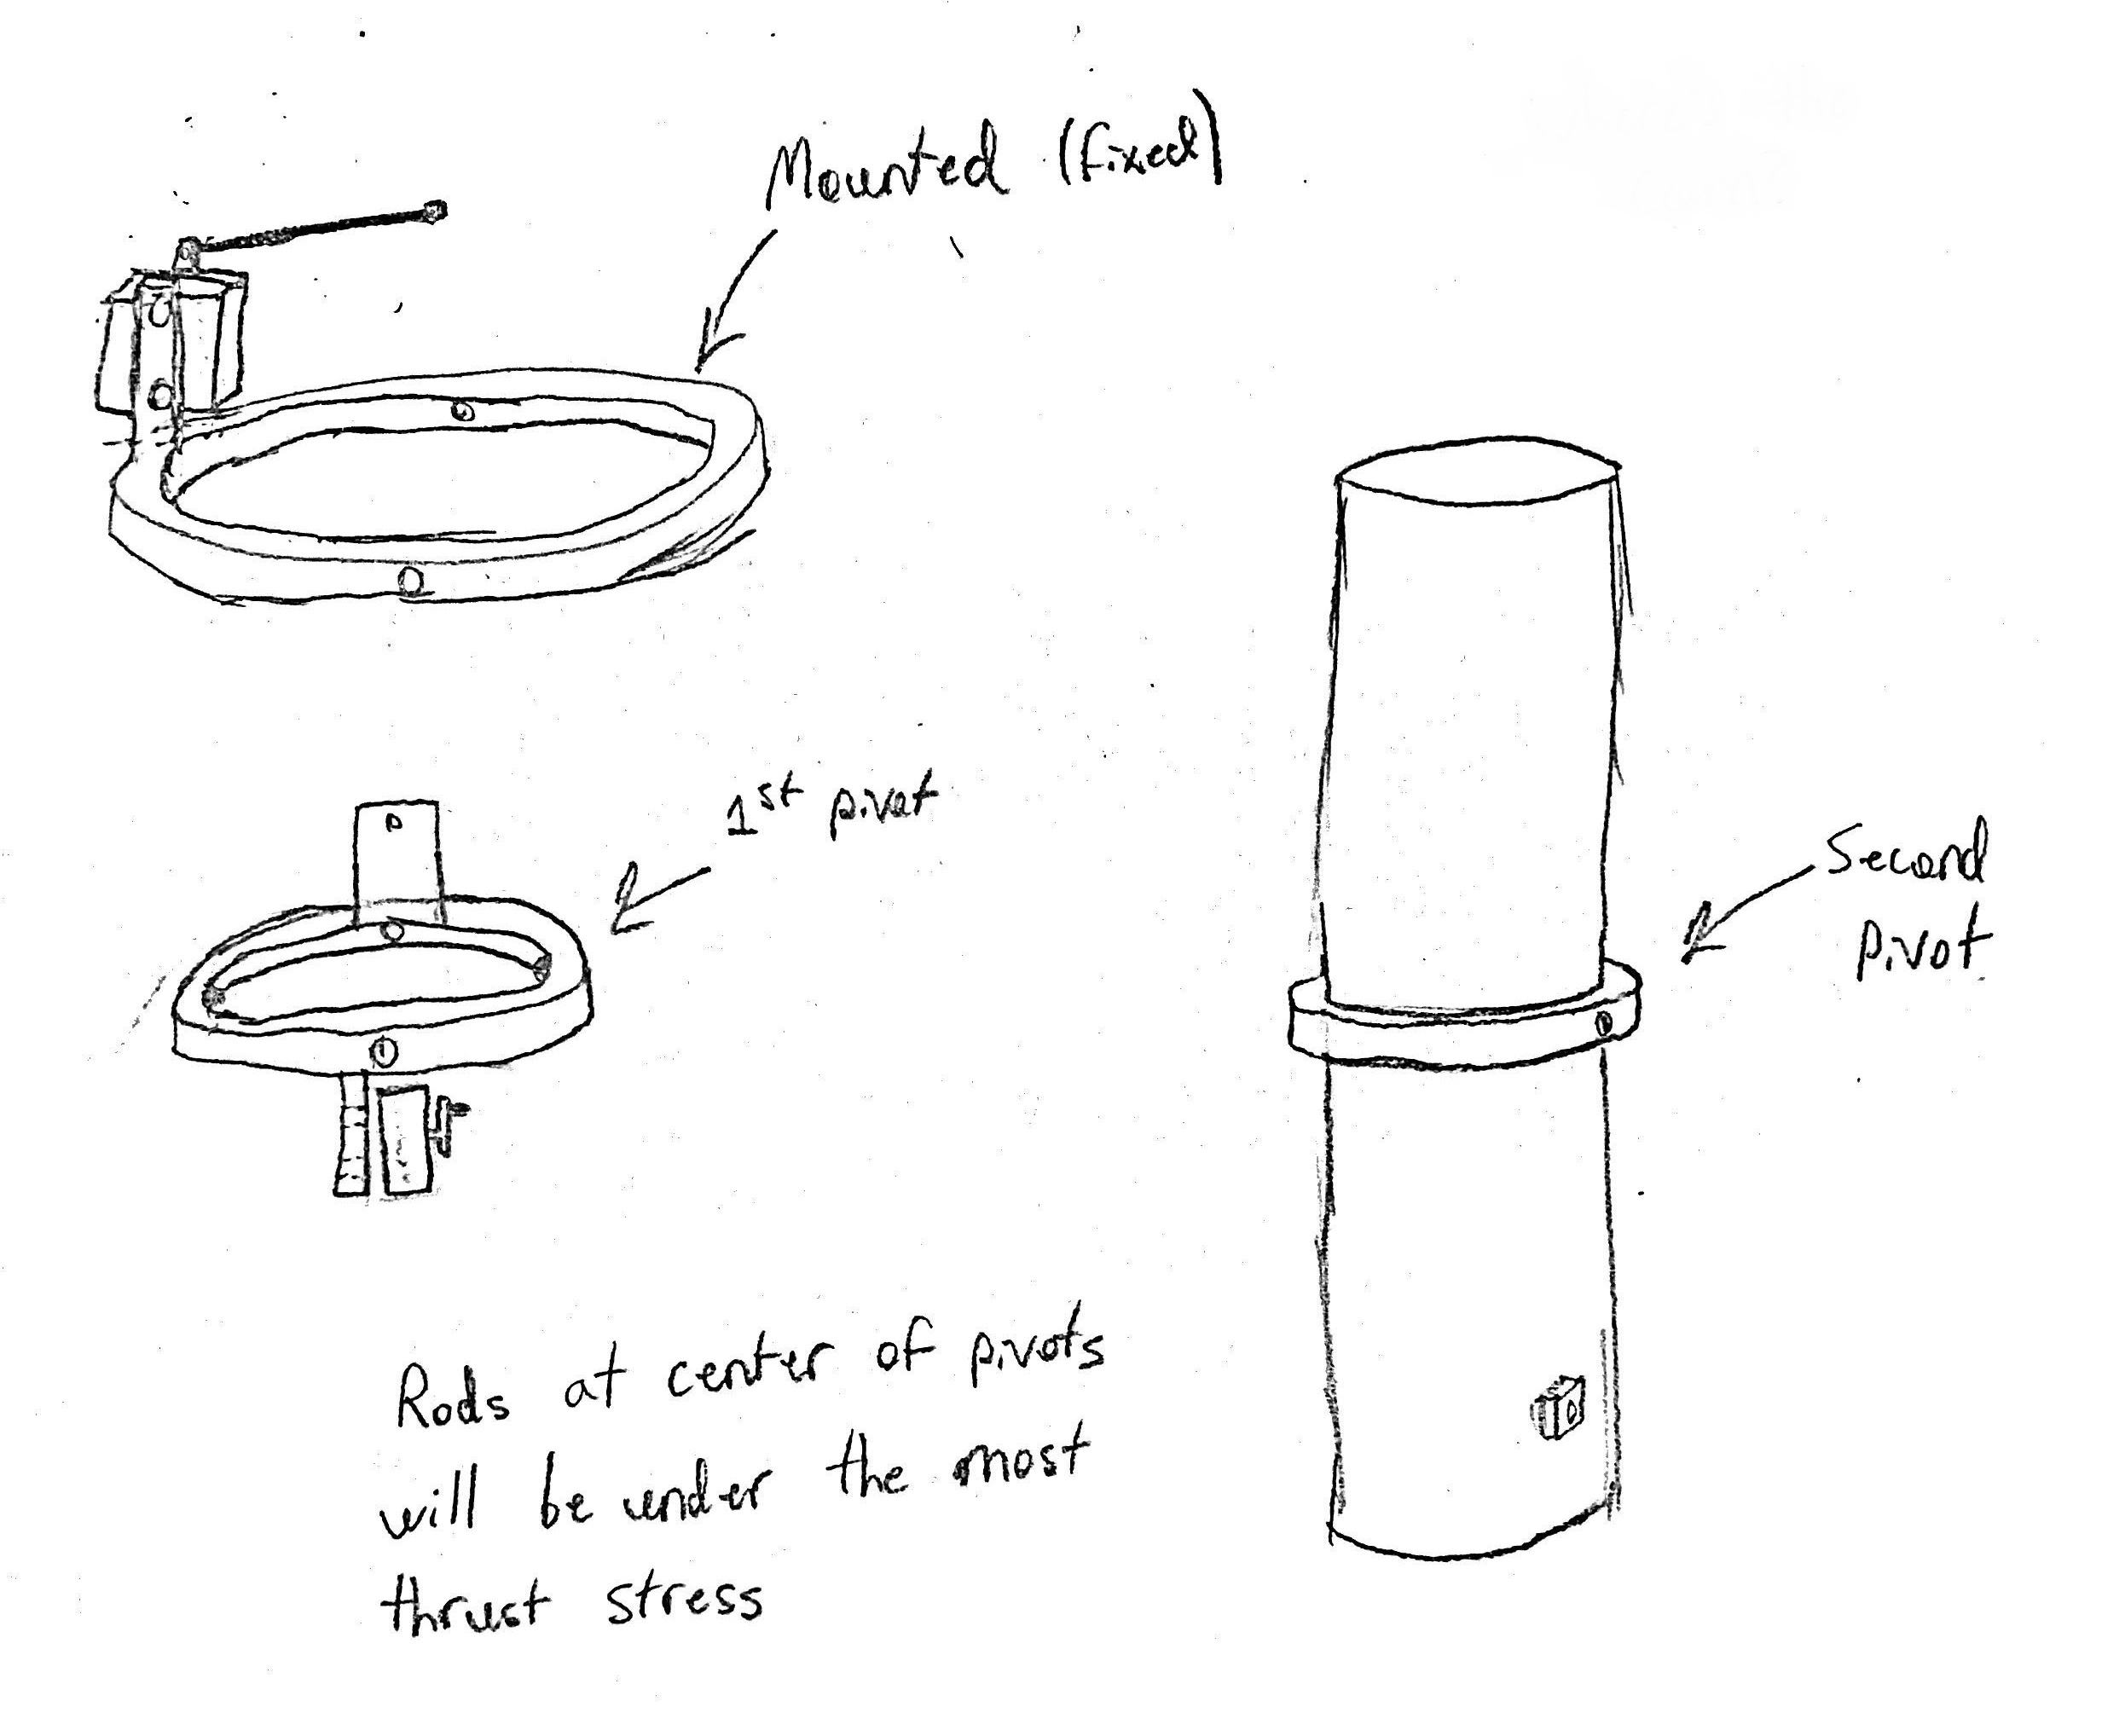 Mounted (fixed)
1st pivot
Second
pivot
Rods at center of pivots
will be under the most
thrust stress